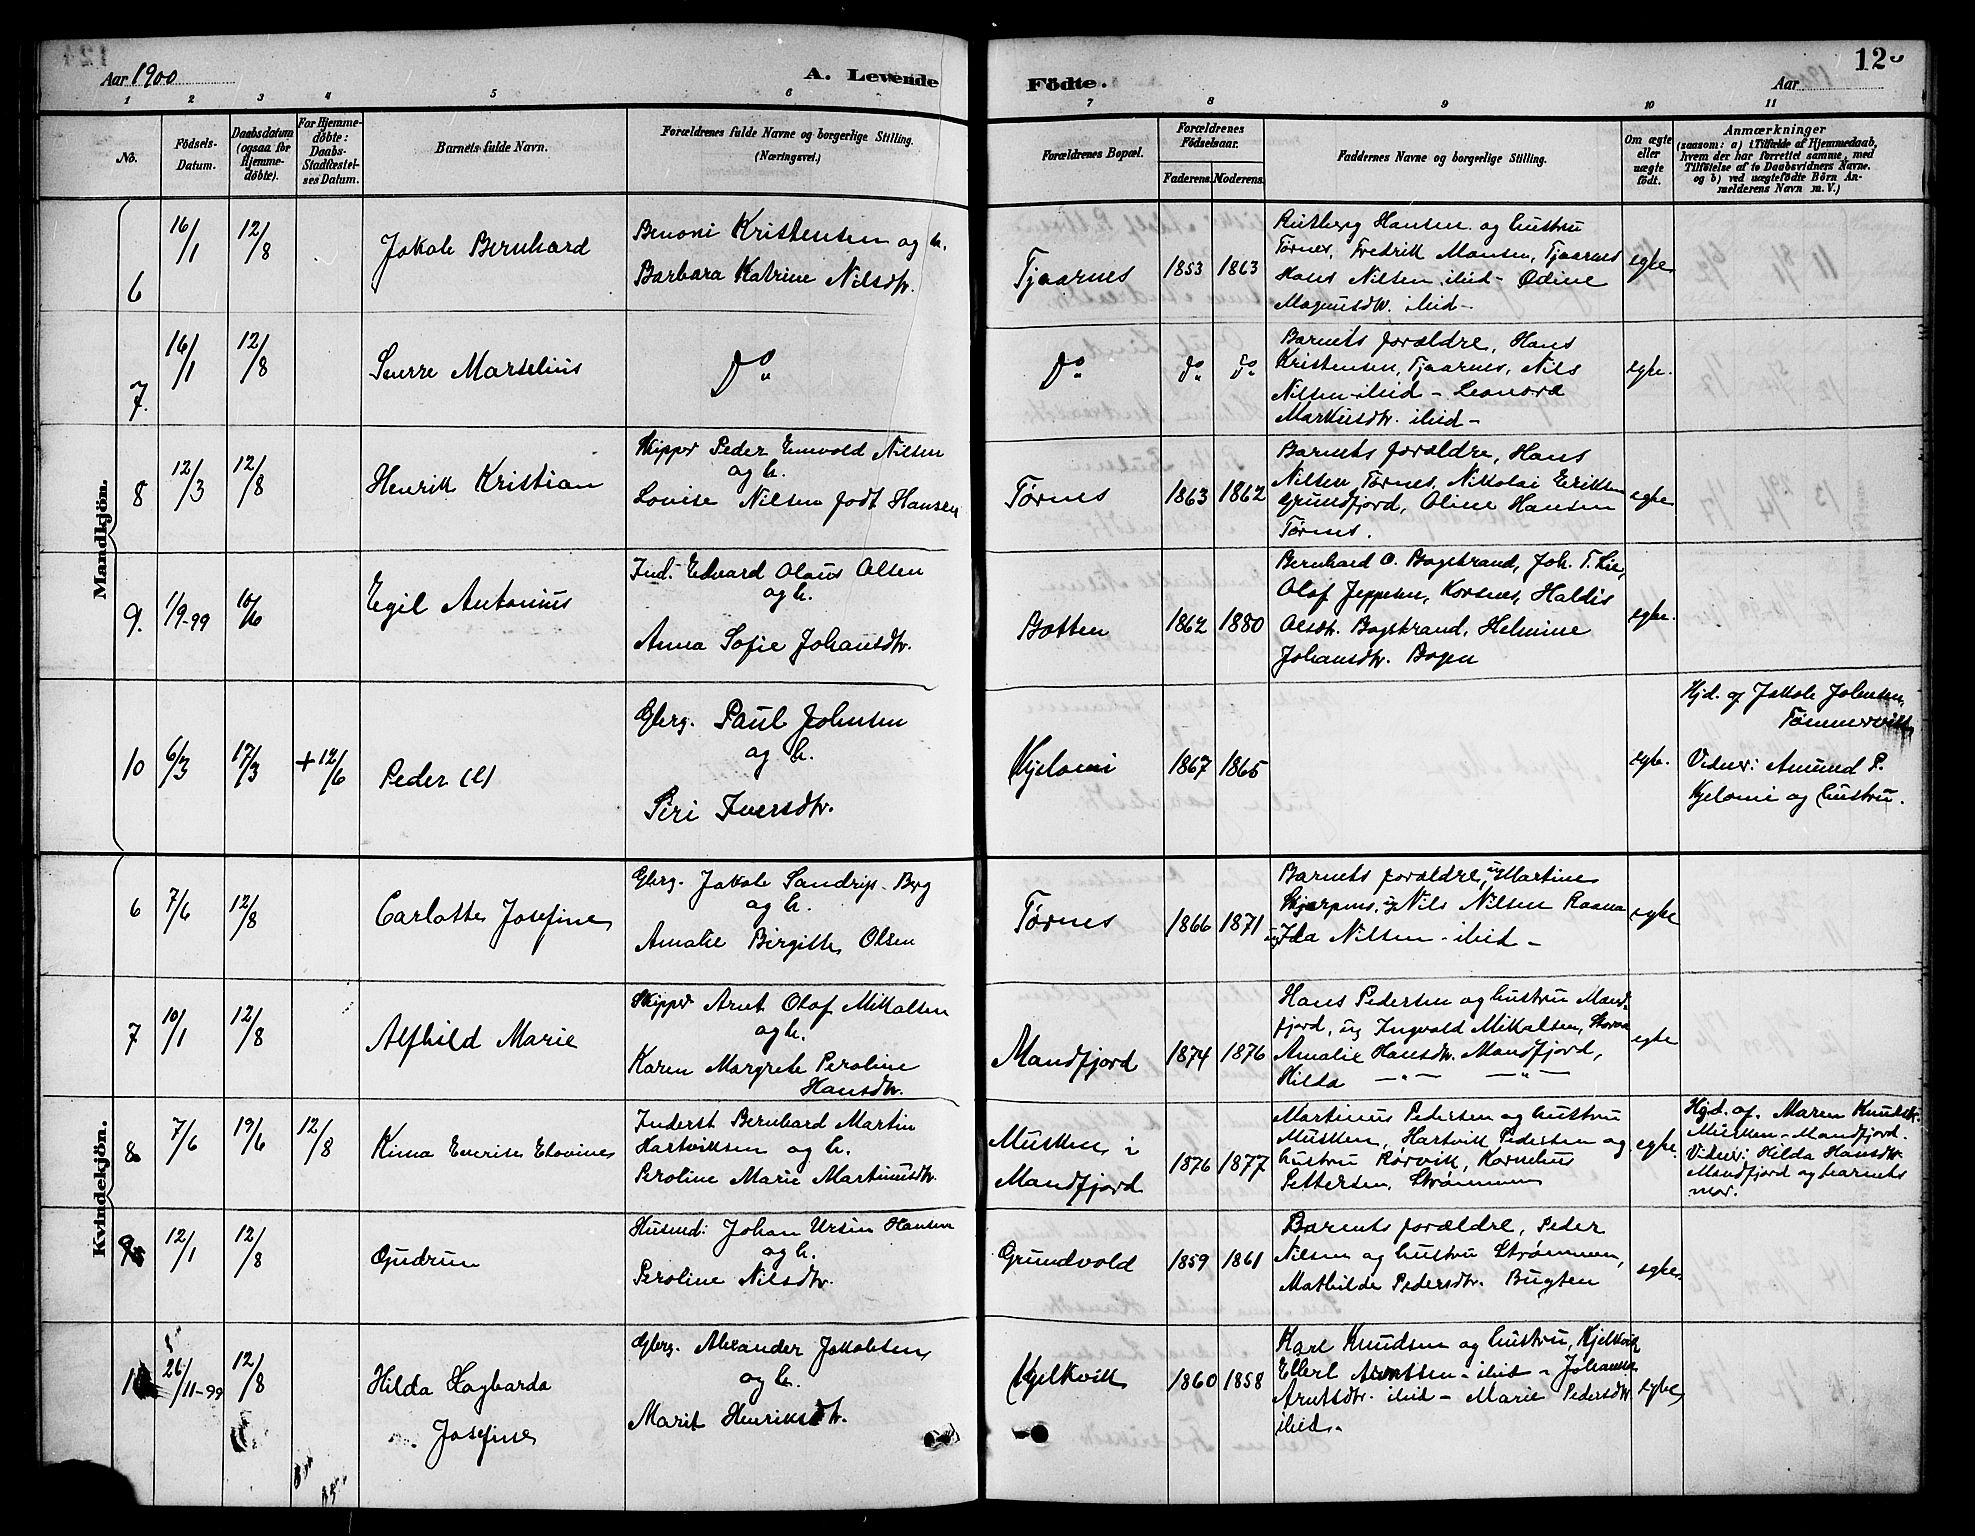 Aar 1900
A. Levende
Födte.
Aar
12
1 2 3 4 5 6 7 8 9 10 11
No.
Födsels-
Datum.
Daabsdatum
(ogsaa for
Hjemme-
döbte).
For Hjemme-
döbte:
Daabs-
Stadfæstel-
ses Datum.
Barnets fulde Navn.
Forældrenes fulde Navne og borgerlige Stilling.
(Næringsvei.)
Forældrenes Bopæl.
Forældrenes
Födselsaar.
Faderens. Moderens.
Faddernes Navne og borgerlige Stilling.
Om ægte
eller
uægte
födt.
Anmærkninger
(saasom: a) i Tilfælde af Hjemmedaab,
hvem der har forrettet samme, med
Tilföielse af to Daabsvidners Navne.
og b) ved uægtefödte Börn An-
melderens Navn m. V.)
Mandkjön.
6 16/1 12/8 Jakob Bernhard
Benoni Kristensen og h.
Barbara Katrine Nilsdtr.
Tjaarnes 1853 1863
Hansen og hustru
Tørnes, Fredrik Monsen, Tjaarnes
Hans Nilsen ibid - Odine
Magnusdtr. ibid -
egte
7. 16/1 12/8 Sverre Marselius
do
do do do
Barnets forældre, Hans
Kristensen, Tjaarnes, Nils
Nilsen ibid - Leonora
Markusdtr. ibid -
egte.
8 12/3 12/8 Henrik Kristian
Skipper Peder Enevold Nilsen
og h.
Lovise Nilsen født Hansen
Tørnes 1863 1862
Barnets forældre, Hans
Nilsen, Tørnes, Nikolai Eriksen
Grundfjord, Oline Hansen
Tørnes.
egte
9. 1/9-99 10/6 Egil Antonius
Ind. Edvard Olaus Olsen
og h.
Anna Sofie Johansdtr.
Botten 1862 1880
Bernhard O. Bogstrand, Joh. T. Lie,
Olof Jeppesen, Korsnes, Haldis
Olsdtr. Bogstrand, Helmine
Johansdtr. Bogen
egte.
10 6/3 17/3 + 12/6 Peder
Gbrg. Paul Johnsen
og h.
Siri Iversdtr.
Kjelomi 1867 1865
egte.
Hjd. af Jakob Johnsen,
Tømmervik
Vidner: Amund P.
Kjelomi og hustru.
Kvindekjön.
6 7/6 12/8 Carlotte Josefine
Gbrg. Jakob Sandrip Berg
og h.
Amalie Birgitte Olsen
Tørnes 1866 1871
Barnets forældre, ug Martine
Skjerpnes, ug Nils Nilsen Raana
ug Ida Nilsen - ibid -
egte
7 10/1 12/8 Alfhild Marie
Skipper Arnt Olof Mikkalsen
og h.
Karen Margrete Peroline
Hansdtr.
Mandfjord 1874 1876
Hans Pedersen og hustru Mand-
fjord, ug Ingvald Mikkalsen,
Amalie Hansdtr. Mandfjord,
Hilda -"- -"-
egte
8 7/6 19/6 12/8 Kima Everise Elovine
Inderst Bernhard Martin
Hartviksen og h.
Peroline Marie Martinusdtr.
Musken i
Mandfjord
1876 1877
Martinus Pedersen og hustru
Musken, Hartvik Pedersen og
hustru Rørvik, Kornelius
Pettersen, Strømmen
egte.
Hjd. af. Maren Knudsdtr.
Musken - Mandfjord.
Vidner: Hilda Hansdtr.
Mandfjord og barnets
mor.
9 12/1 12/8 Gudrun
Husmd: Johan Ursin Hansen
og h.
Peroline Nilsdtr.
Grundvold 1859 1861
Barnets forældre, Peder
Nilsen og hustru Strømmen,
Mathilde Pedersdtr. Bugten
egte.
10 26/11-99 12/8 Hilda Hagbarda
Josefine
Gbrg. Alexander Jakobsen
og h.
Marit Henriksdtr.
Kjelkvik 1860 1858
Karl Knudsen og hustru, Kjelkvik
Ellerl Arntsen - ibid - Johanna
Arntsdtr. ibid - Marie Pedersdtr
ibid.
egte